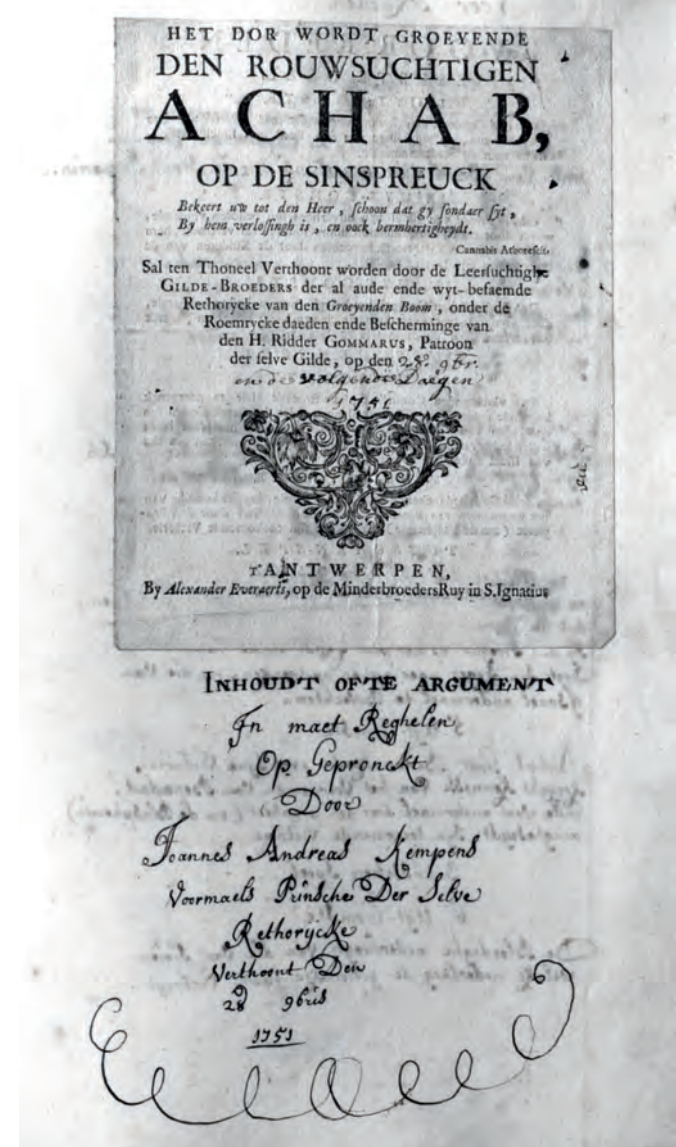 HET DOR WORDT GROEYENDE
DEN ROUWSUCHTIGEN
ACHAB,
OP DE SINSPREUCK
Bekeert uw tot den Heer, ſchoon dat gy ſondaer ſyt,
By hem verloſſingh is, en oock bermhertigheydt.
Sal ten Thoneel Verthoont worden door de Leerſuchtighe
GILDE-BROEDERS der al aude ende wyt-befaemde
Rethorycke van den Groeyenden Boom, onder de
Roemrycke daeden ende Beſcherminge van
den H. Ridder GOMMARUS, Patroon
der ſelve Gilde, op den 28. 9br.
en de volgende Daegen
1751
T'ANTWERPEN,
By Alexander Everaerts, op de MinderbroedersRuy in S. Ignatius
INHOUDT OFTE ARGUMENT
In maet Reghelen
Op Gepronckt
Door
Joannes Andreas Kempens
Voormaels Prinsche Der Selve
Rethorycke
Verthoont Den
28 9bris
1751